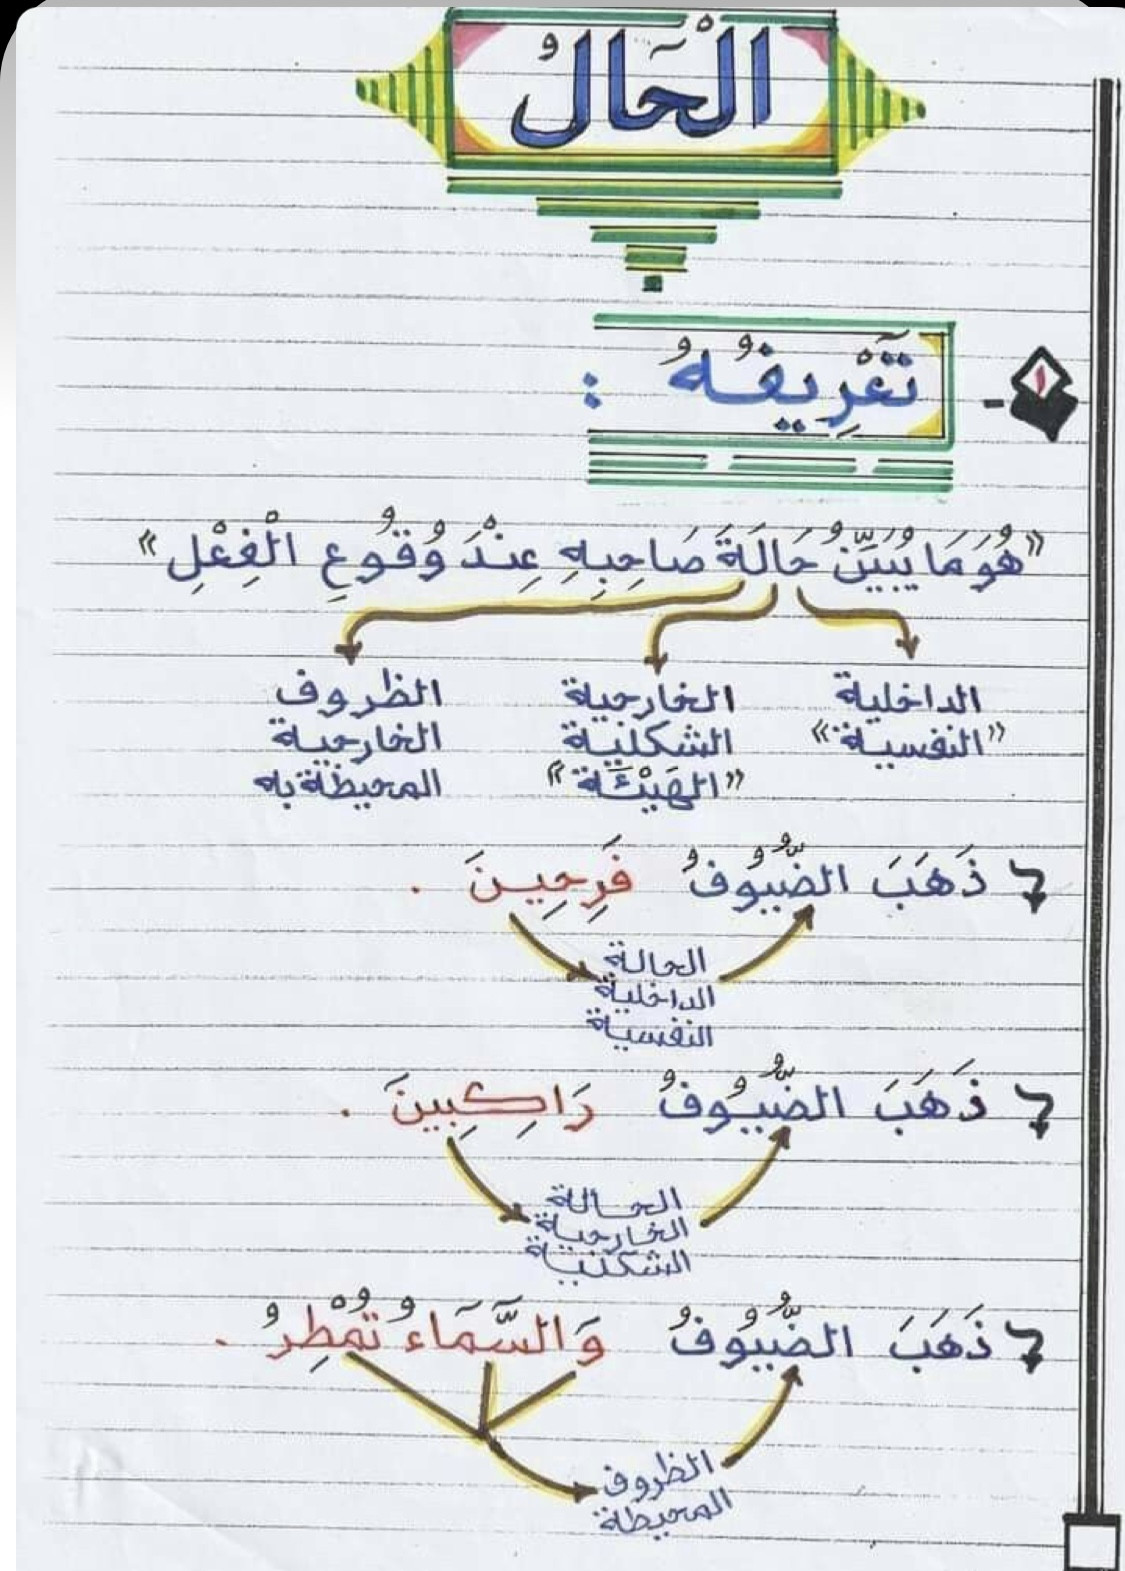 الْحَالُ
١- تَعْرِيفُهُ :
«هُوَ مَا يُبَيِّنُ حَالَةَ صَاحِبِهِ عِنْدَ وُقُوعِ الْفِعْلِ»
الداخلية
«النفسية»
الخارجية
الشكلية
«الهَيْئَة»
الظروف
الخارجية
المحيطة به
ذَهَبَ الضُّيُوفُ فَرِحِينَ .
الحالة
الداخلية
النفسية
ذَهَبَ الضُّيُوفُ رَاكِبِينَ .
الحالة
الخارجية
الشكلية
ذَهَبَ الضُّيُوفُ وَالسَّمَاءُ تُمْطِرُ .
الظروف
المحيطة